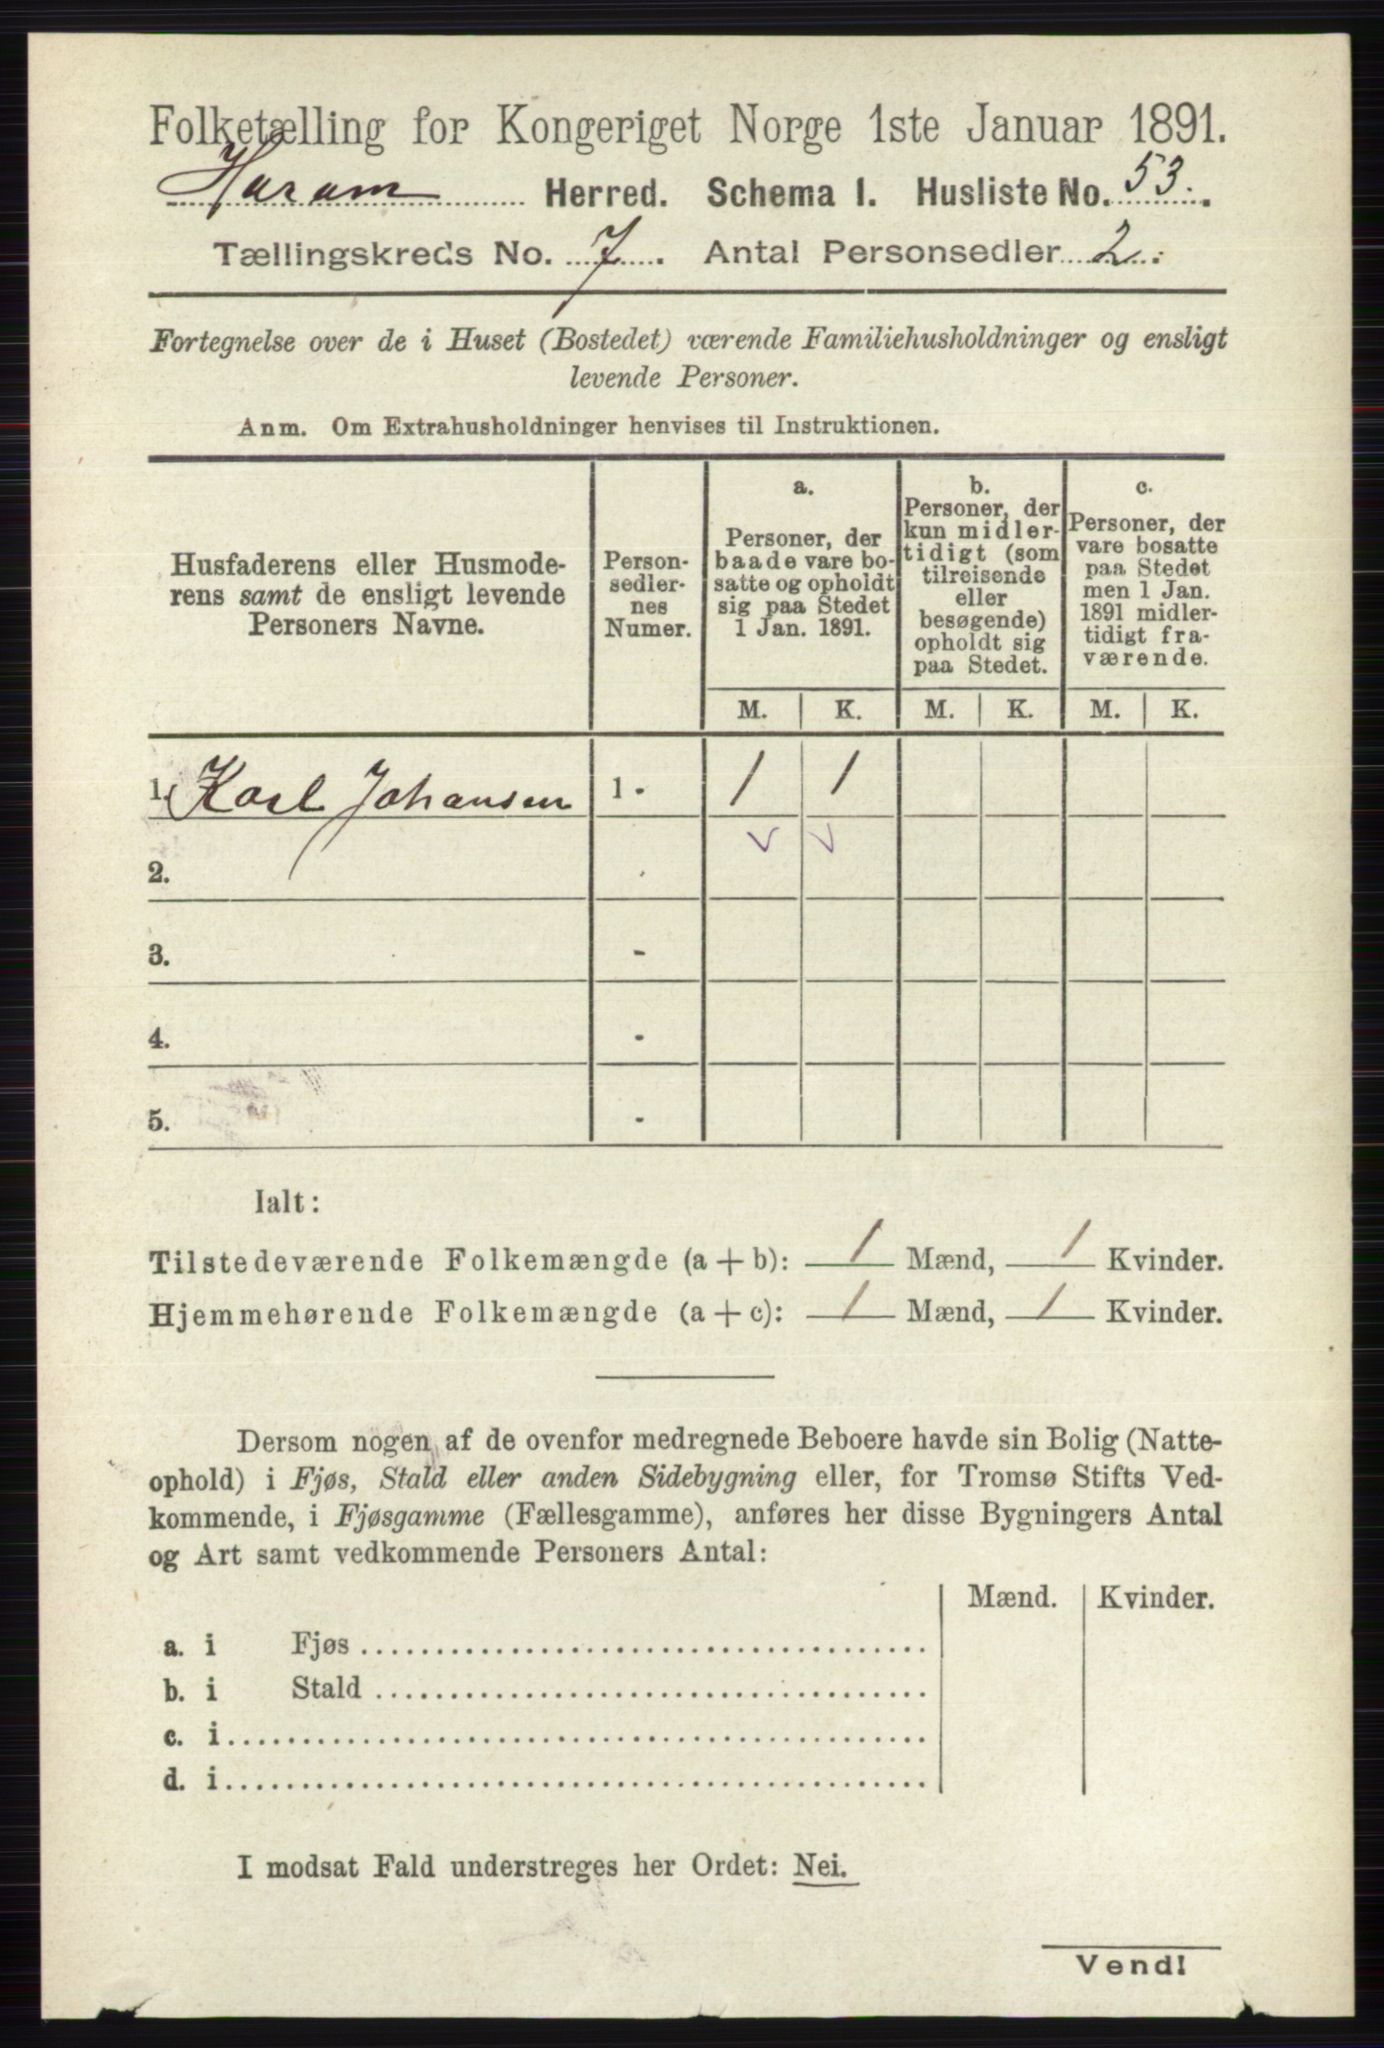 Folketælling for Kongeriget Norge 1ste Januar 1891.
Haram Herred. Schema 1. Husliste No. 53.
Tællingskreds No. 7. Antal Personsedler 2.
Fortegnelse over de i Huset (Bostedet) værende Familiehusholdninger og ensligt
levende Personer.
Anm. Om Extrahusholdninger henvises til Instruktionen.
Husfaderens eller Husmode-
rens samt de ensligt levende
Personers Navne.
Person-
sedler-
nes
Numer.
a.
Personer, der
baade vare bo-
satte og opholdt
sig paa Stedet
1 Jan. 1891.
b.
Personer, der
kun midler-
tidigt (som
tilreisende
eller
besøgende)
opholdt sig
paa Stedet.
c.
Personer, der
vare bosatte
paa Stedet
men 1 Jan.
1891 midler-
tidigt fra-
værende.
M. K. M. K. M. K.
1. Karl Johansen 1 - 1 1
2. -
3. -
4. -
5. -
Ialt:
Tilstedeværende Folkemængde (a + b): 1 Mænd, 1 Kvinder.
Hjemmehørende Folkemængde (a + c): 1 Mænd, 1 Kvinder.
Dersom nogen af de ovenfor medregnede Beboere havde sin Bolig (Natte-
ophold) i Fjøs, Stald eller anden Sidebygning eller, for Tromsø Stifts Ved-
kommende, i Fjøsgamme (Fællesgamme), anføres her disse Bygningers Antal
og Art samt vedkommende Personers Antal:
Mænd. Kvinder.
a. i Fjøs
b. i Stald
c. i
d. i
I modsat Fald understreges her Ordet: Nei.
Vend!